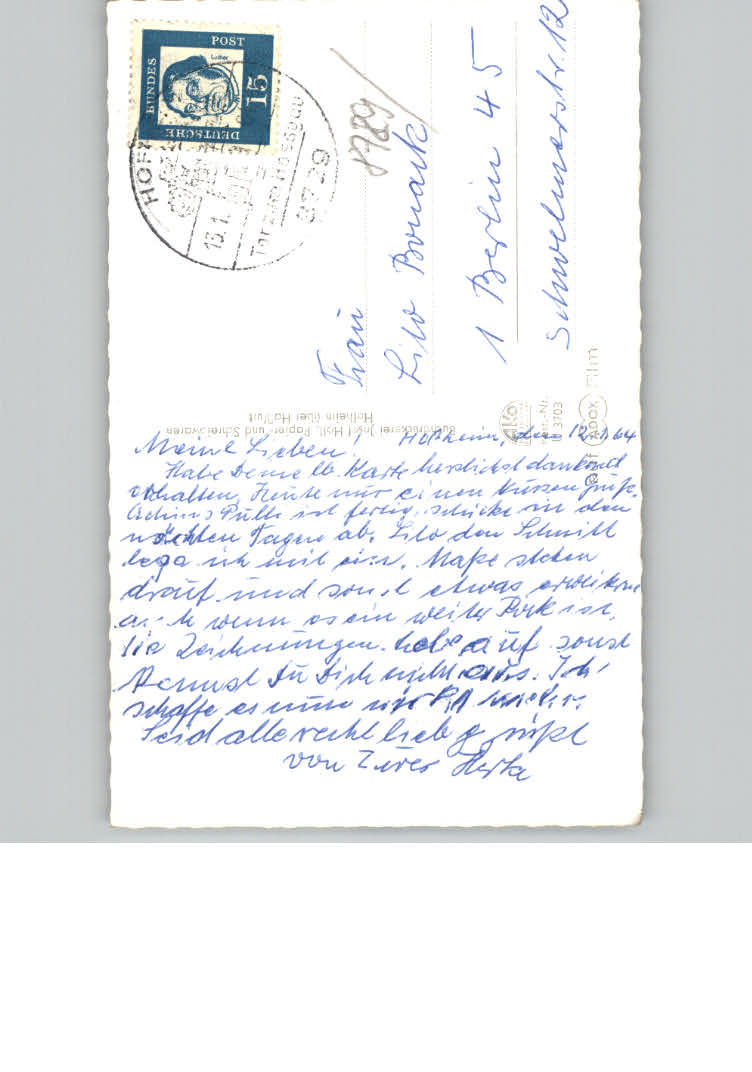 DEUTSCHE
BUNDES
POST
Luther
15
HOF
13.1.
Tor zum Hassgau
8729
8789
Frau
Lilo Bonack
1 Berlin 45
Schwelmerstr. 12
Buchdruckerei Josef Holl, Papier- und Schreibwaren
Hofheim über Haßfurt
AKO
H 3703
auf ADOX Film
Meine Lieben! Hofheim, den 12.1.64
Habe Deine lb. Karte herzlichst dankend
erhalten, Heute nur einen kurzen Gruß.
Achims Pulli ist fertig, schicke in den
nächsten Tagen ab. Lilo den Schnitt
lege ich mit ein. Maße stehen
drauf und sonst etwas erweitern
wenn es ein weiter Rock ist,
die Zeichnungen hebe auf sonst
kennst Du Dich nicht aus. Ich
schaffe es nun
Seid alle recht lieb gegrüßt
von Eurer Herta